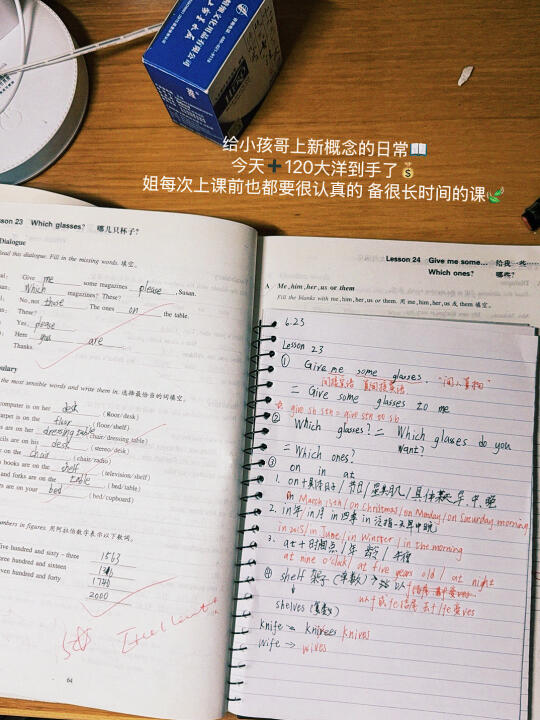 给小孩哥上新概念的日常📖
今天➕120大洋到手了💰
姐每次上课前也都要很认真的 备很长时间的课🌿
sson 23 Which glasses? 哪几只杯子?
Dialogue
Read this dialogue. Fill in the missing words. 填空。
Give me some magazines please, Susan.
Which magazines? These?
No, not those. The ones on the table.
These?
Yes, please.
Here you are.
Thanks
bulary
the most sensible words and write them in. 选择最恰当的词填空。
computer is on her desk (floor/desk)
carpet is on the floor (floor/shelf)
are on her dressing table (chair/dressing table)
cils are on his desk (stereo/desk)
on the chair (chair/radio)
books are on the shelf (television/shelf)
and forks are on the table (bed/table)
es are on your bed (bed/cupboard)
numbers in figures. 用阿拉伯数字表示以下数词。
five hundred and sixty-three 1563
three hundred and sixteen
ven hundred and forty 1740
2000
Excellent
64
Lesson 24 Give me some… 给我一些……
Which ones? 哪些?
A Me, him, her, us or them
Fill the blanks with me, him, her, us or them. 用 me, him, her, us 或 them 填空。
6.23
Lesson 23
① Give me some glasses.
间接宾语 直接宾语
= Give some glasses to me
☆ give sb sth = give sth to sb
② Which glasses? = Which glasses do you want?
= Which ones?
③ on in at
1. on + 具体日子/节日/星期几/具体某天早.中.晚
on March 15th/on Christmas/on Monday/on Saturday morning
2. in 年 in 月 in 四季 in 泛指一天早中晚
in 2015/in June/in winter/in the morning
3. at + 时间点/年龄/午夜
at nine o'clock/at five years old/at night
④ shelf 架子 (单数)
shelves (复数)
knife → knives
wife → wives